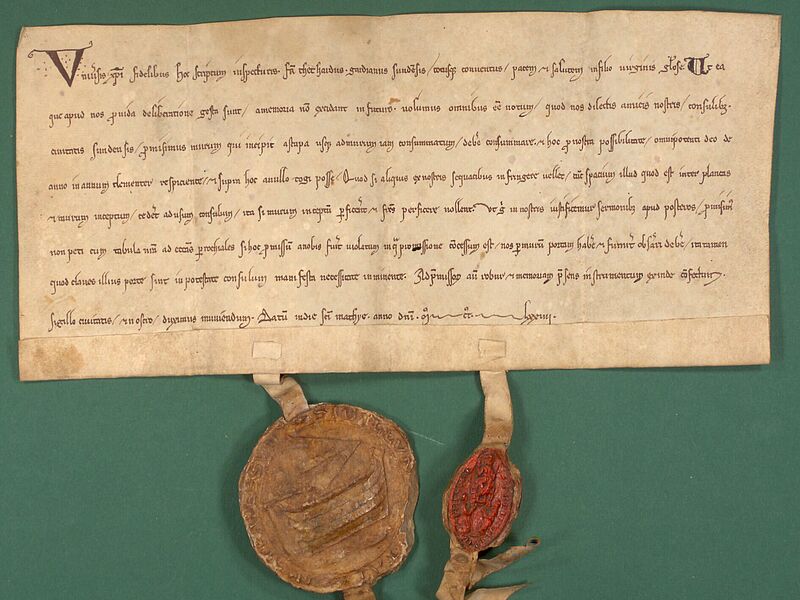 Vniu'sis xpi fidelibus hoc scriptum inspecturis. Fr' thethardus. gardianus sundensis / totusq; conuentus / pacem & salutem in filio uirginis gl'ose. Vt ea
que apud nos prouida deliberatione gesta sunt / a memoria nō excidant in futuro. uolumus omnibus eē notum / quod nos dilectis amicis nostris / consulib;
ciuitatis sundensis / promisimus murum qui incipit a stupa usq; ad murum iam consummatum / deb'e consummare. & hoc pro nostra possibilitate / omnipotenti deo de
anno in annum clementer respiciente / & supra hoc a nullo cogi posse. Quod si aliquis ex nostris sequacibus infringere uellet / tūc spacium illud quod est inter plancas
& murum inceptum / cedet ad usum consulum / ita si murum inceptū perficere & fr'es perficere nollent. Vt g' in nostris iustificemur sermonib; apud posteros / promisim'
non peti cum tabula ad ecc'as parrochiales si hoc promissum a nobis fuerit uiolatum concessum est / nos per murum portam hab'e & deb'e / ita tamen
quod claues illius porte sint in potestate consulum manifesta necessitate inminente. Ad p'missor' aūt robur / & memoriam p'sens instrumentum exinde cōfectum.
sigillo ciuitatis / & nostro / duximus muniendum. Datū in die sc'i mathye. anno dn̄i. mº ccº lxxiiii.